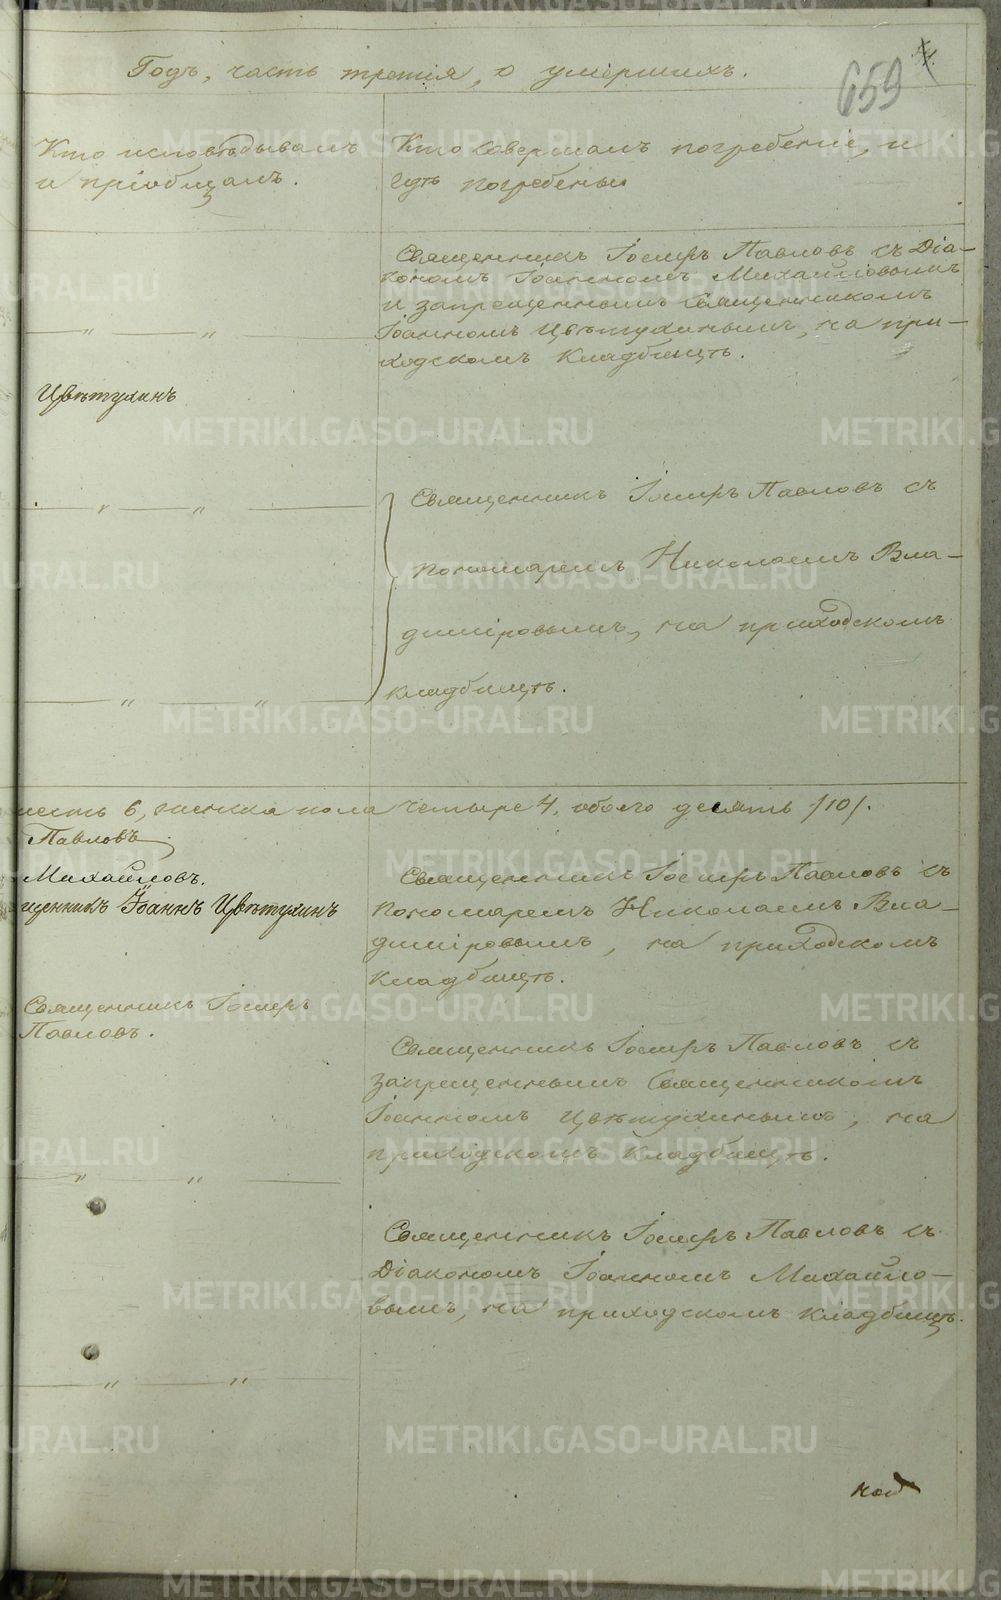 Годъ, часть третія, о умершихъ.
659
Кто исповѣдывалъ
и пріобщалъ.
Кто совершалъ погребеніе, и
гдѣ погребены
Священникъ Іосифъ Павловъ съ Діа-
кономъ Іоанномъ Михайловымъ
и запрещеннымъ Священникомъ
Іоанномъ Цвѣтухинымъ, на при-
ходскомъ кладбищѣ.
Цвѣтухинъ
Священникъ Іосифъ Павловъ съ
пономаремъ Николаемъ Вла-
диміровымъ, на приходскомъ
кладбищѣ.
шесть 6, женска пола четыре 4, обоего десять /10/.
Павловъ
Михайловъ.
щенникъ Іоаннъ Цвѣтухинъ
Священникъ Іосифъ Павловъ съ
пономаремъ Николаемъ Вла-
диміровымъ, на приходскомъ
кладбищѣ.
Священникъ Іосифъ
Павловъ.
Священникъ Іосифъ Павловъ съ
запрещеннымъ Священникомъ
Іоанномъ Цвѣтухинымъ, на
приходскомъ кладбищѣ.
Священникъ Іосифъ Павловъ съ
Діакономъ Іоанномъ Михайло-
вымъ, на приходскомъ кладбищѣ.
METRIKI.GASO-URAL.RU